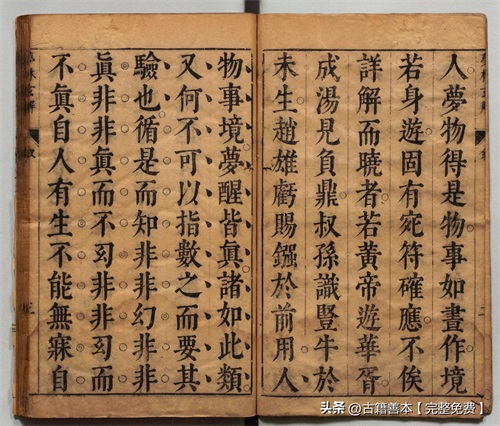 夢林玄解
二
人夢物得是物事如晝作境
若身遊固有宛符確應不俟
詳解而曉者若黃帝遊華胥
成湯見負鼎叔孫識豎牛於
未生趙雄虧賜鏹於前用人
物事境夢醒皆眞諸如此類
又何不可以指數之而要其
驗也循是而知非非幻非非
眞非非眞而不幻非非幻而
不眞自人有生不能無寐自
夢林玄解
三
头条 @古籍善本【完整免费】